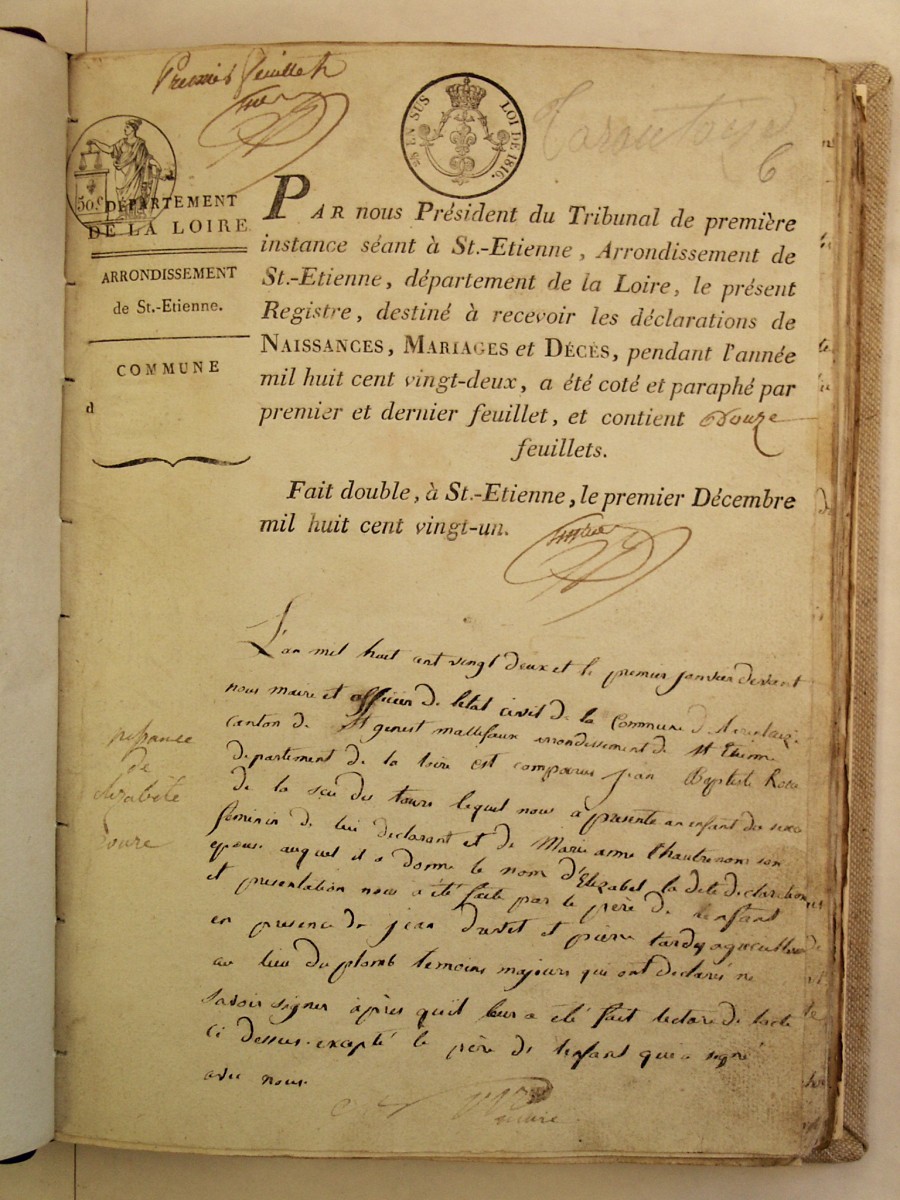 Premier feuillet
50 EN SUS
LOI DE 1816.
Tarentaize
6
50 c
DÉPARTEMENT
DE LA LOIRE
ARRONDISSEMENT
de St.-Etienne.
COMMUNE
d
PAR nous Président du Tribunal de première
instance séant à St.-Etienne, Arrondissement de
St.-Etienne, département de la Loire, le présent
Registre, destiné à recevoir les déclarations de
NAISSANCES, MARIAGES et DÉCÈS, pendant l'année
mil huit cent vingt-deux, a été coté et paraphé par
premier et dernier feuillet, et contient Douze
feuillets.
Fait double, à St.-Etienne, le premier Décembre
mil huit cent vingt-un.
naissance
de
Elizabete
L'an mil huit cent vingt deux et le premier janvier devant
nous maire et officier de letat civil de la Commune d
canton de St genest mallefaux arrondissement de St Etienne
departement de la loire est comparus jean Baptiste
de la des tours lequel nous a presenté un enfant du sexe
feminin de lui declarant et de Marie anne son
epouse auquel il a donné le nom d'Elizabet la dite declaration
et presentation nous a été faite par le père de lenfant
en presence de jean et pierre tardy agriculteur
au lieu du plomb temoins majeurs qui ont declaré ne
savoir signer après quil leur a été fait lecture de lacte
ci dessus excepté le père de lenfant qui a signé
avec nous
maire